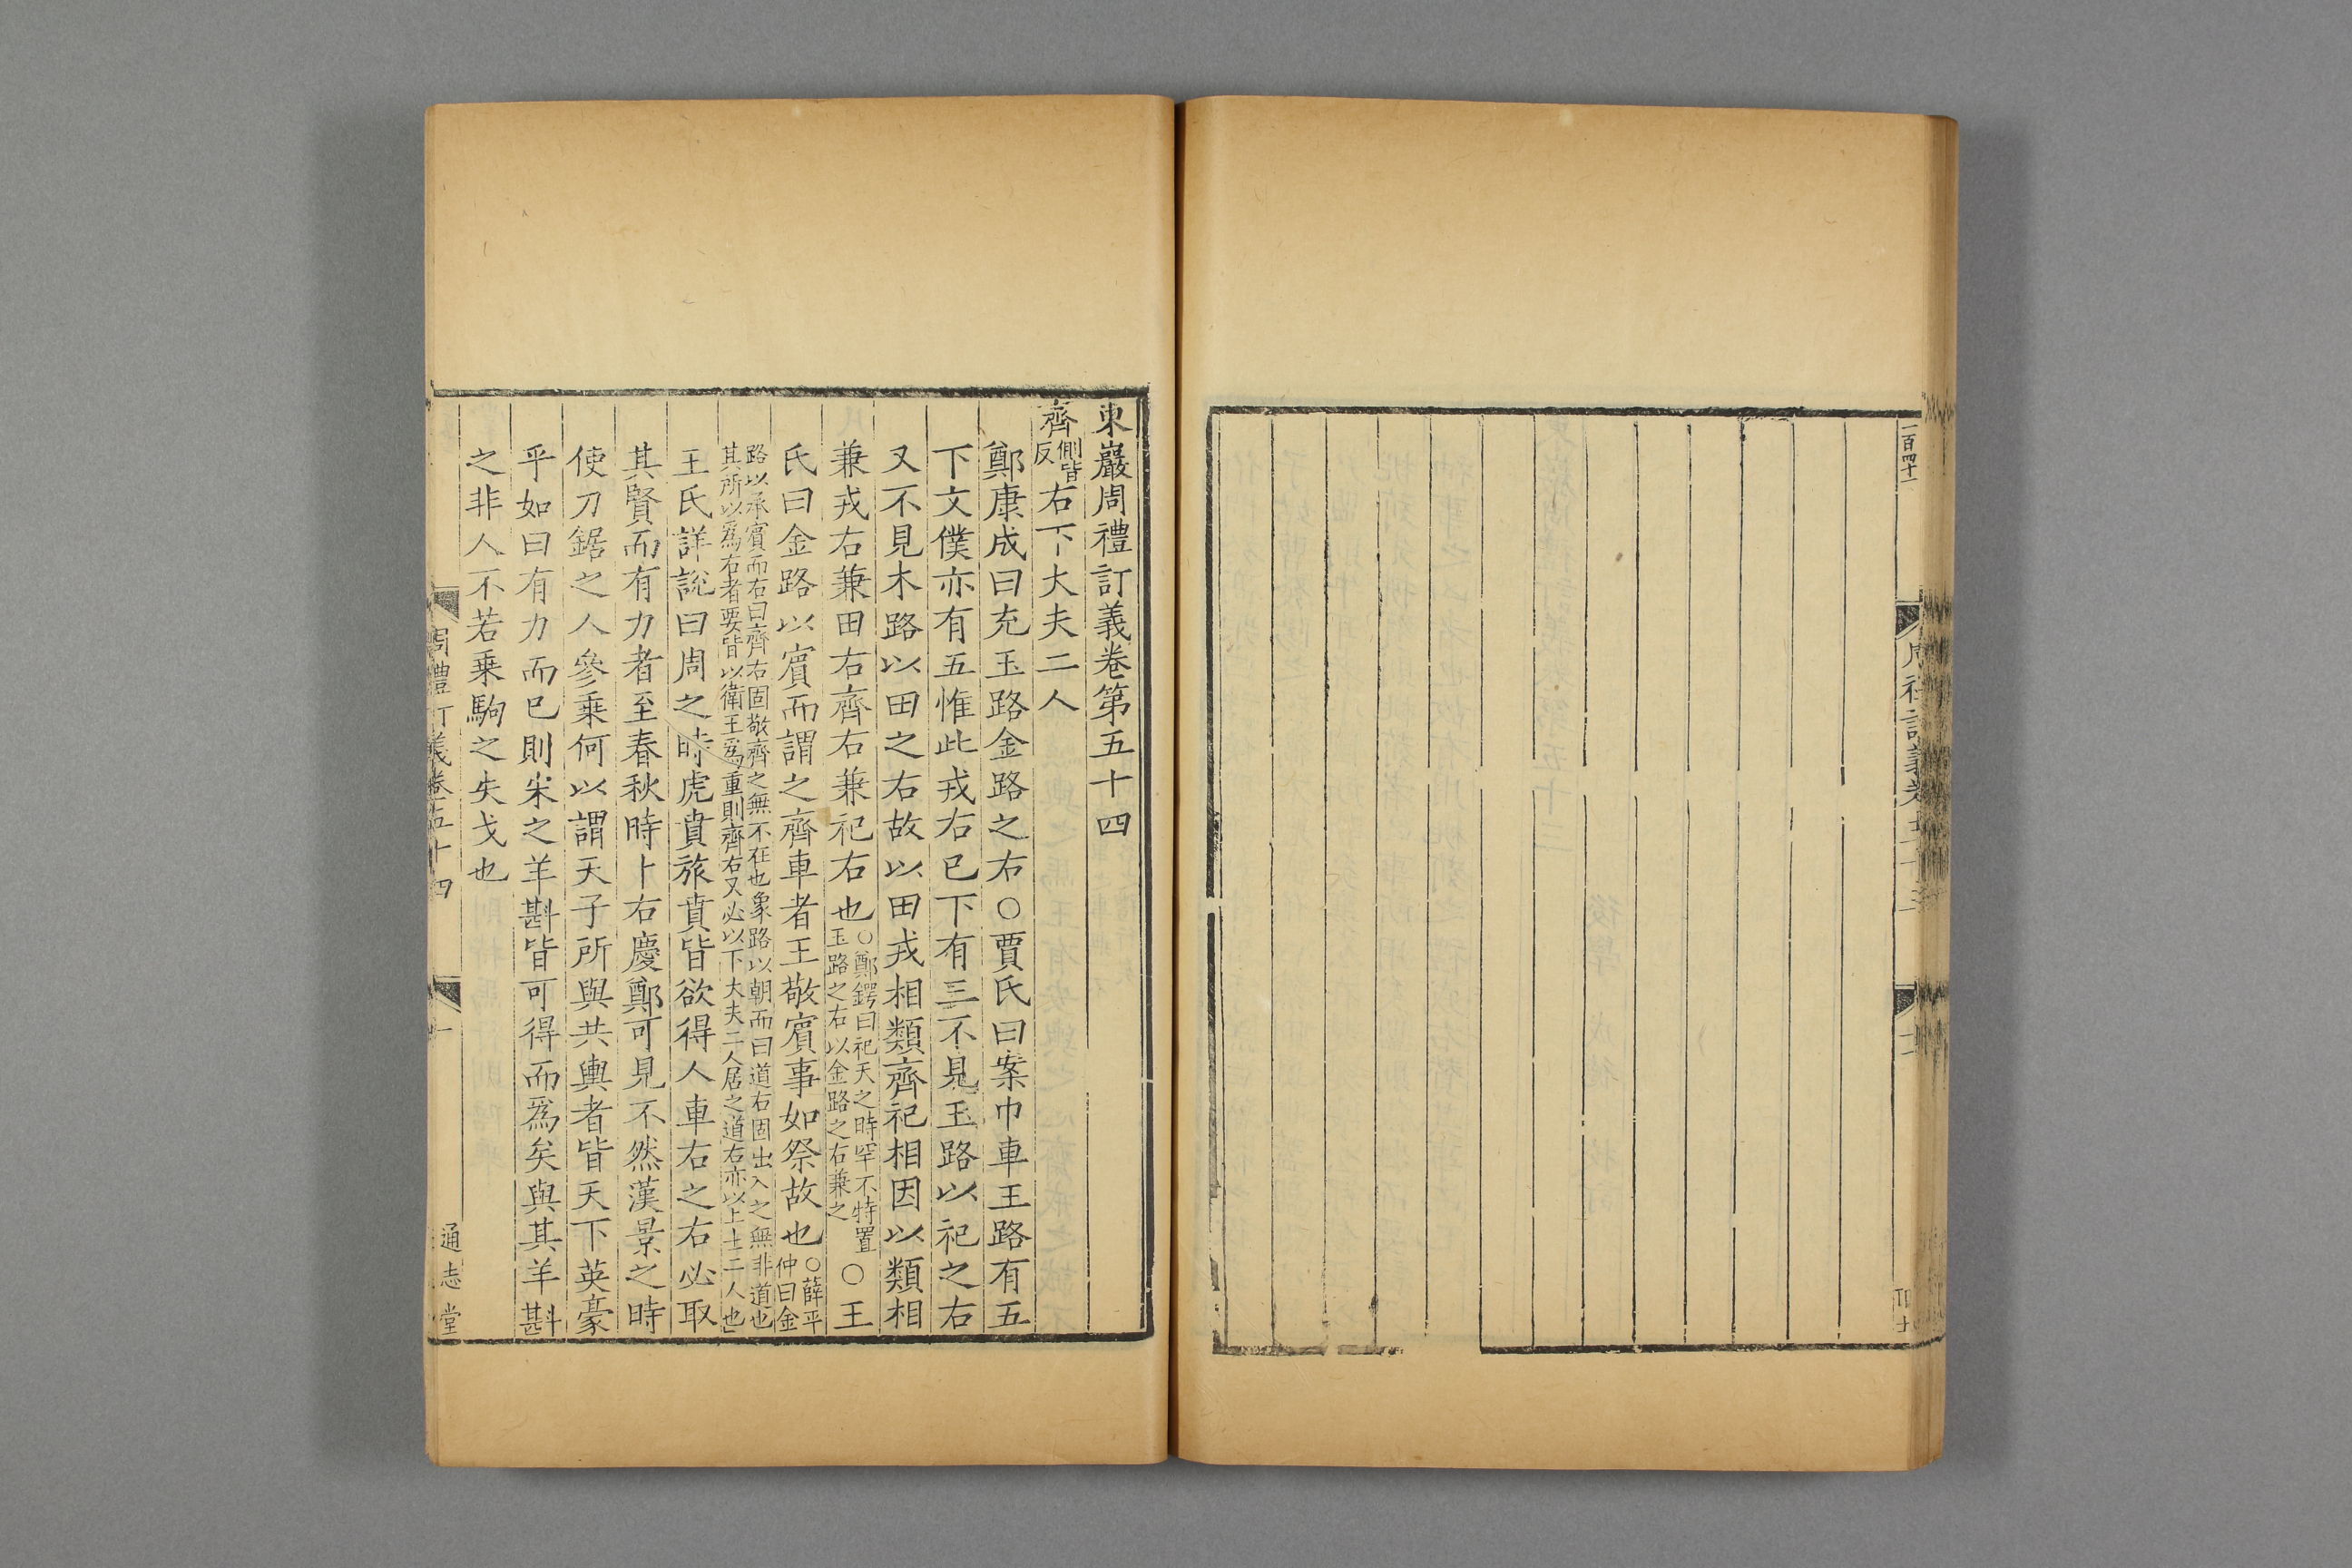 一百四十一
東巖周禮訂義卷第五十四
齊側皆反右下大夫二人
鄭康成曰充玉路金路之右○賈氏曰案巾車王路有五
下文僕亦有五惟此戎右已下有三不見玉路以祀之右
又不見木路以田之右故以田戎相類齊祀相因以類相
兼戎右兼田右齊右兼祀右也○鄭鍔曰祀天之時罕不特置玉路之右以金路之右兼之○王
氏曰金路以賓而謂之齊車者王敬賓事如祭故也○薛平仲曰金
路以承賓而右曰齊右固敬齊之無不在也象路以朝而曰道右固出入之無非道也
其所以爲右者要皆以衛王爲重則齊右又必以下大夫二人居之道右亦以上士二人也
王氏詳說曰周之時虎賁旅賁皆欲得人車右之右必取
其賢而有力者至春秋時卜右慶鄭可見不然漢景之時
使刀鋸之人參乘何以謂天子所與共輿者皆天下英豪
乎如曰有力而已則宋之羊斟皆可得而爲矣與其羊斟
之非人不若乘駒之失戈也
周禮訂義卷五十四
一
通志堂